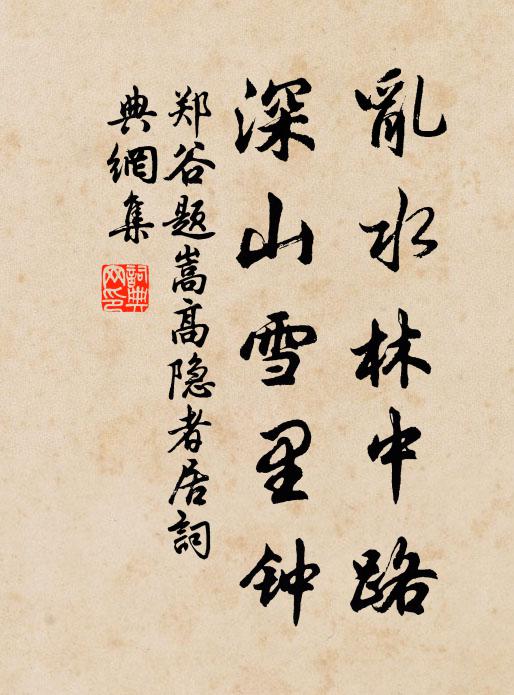 亂水林中路
深山雪里钟
郑谷题嵩高隐者居詞
典網集
詞典
网印